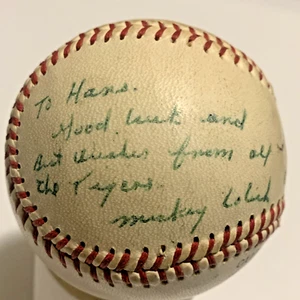 To Hans.
Good luck and
Best wishes from all
the Tigers.
Mickey Lolich